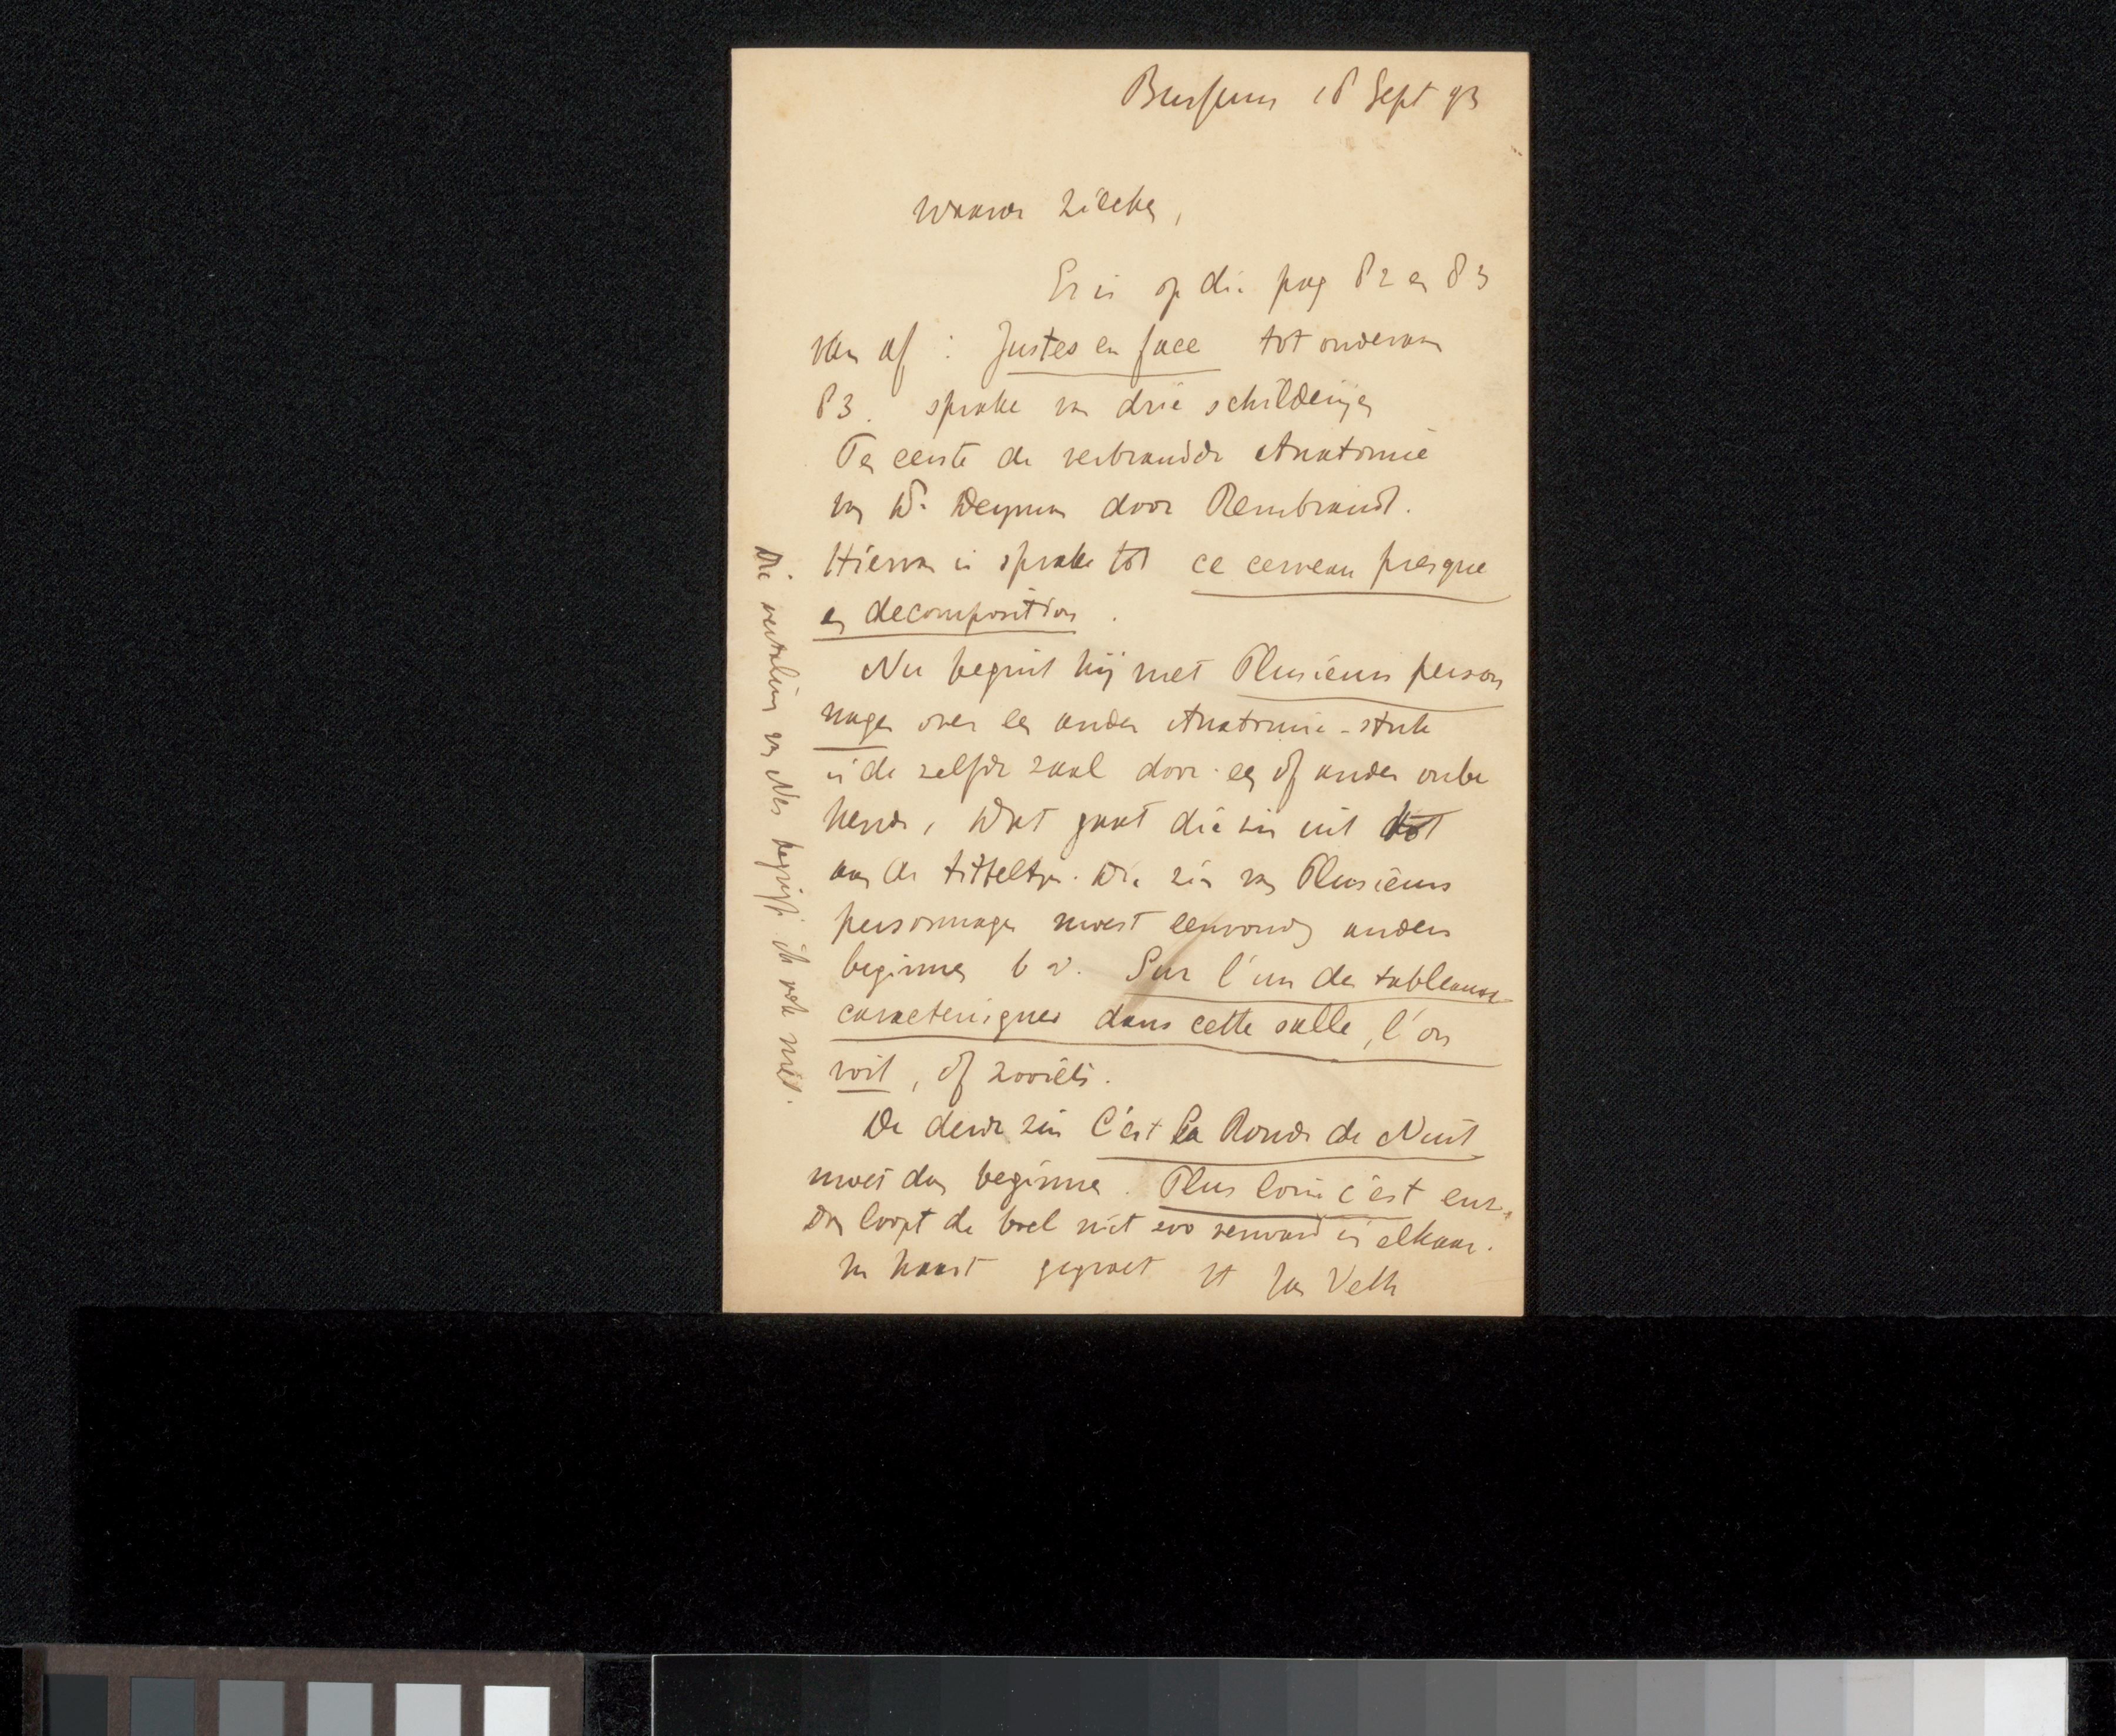 Bussum 18 Sept 93
Waarde Zilcken,
Er is op die pag 82 en 83
van af : Justes en face tot onderaan
83. sprake van drie schilderijen
Ten eerste de verbrande Anatomie
van Dr Deyman door Rembrandt.
Hiervan is sprake tot ce cerveau presque
en decomposition.
Nu begint hij met Plusieurs person
nages over een ander Anatomie-stuk
in de zelfde zaal door een of ander onbe
kende, Dat gaat die zin uit
aan de titteltjes. Die zin van Plusieurs
personnages moest eenvoudig anders
beginnen b v. Sur l'un des tableaux
caracterisques dans cette salle, l'on
voit, of zooiets.
De derde zin C'est la Ronde de Nuit
moet dan beginnen. Plus loin c'est enz.
Dan loopt de boel niet zoo verward in elkaar.
In haast gegroet Jan Veth
Die vertaling van Nes begrijp ik ook niet.